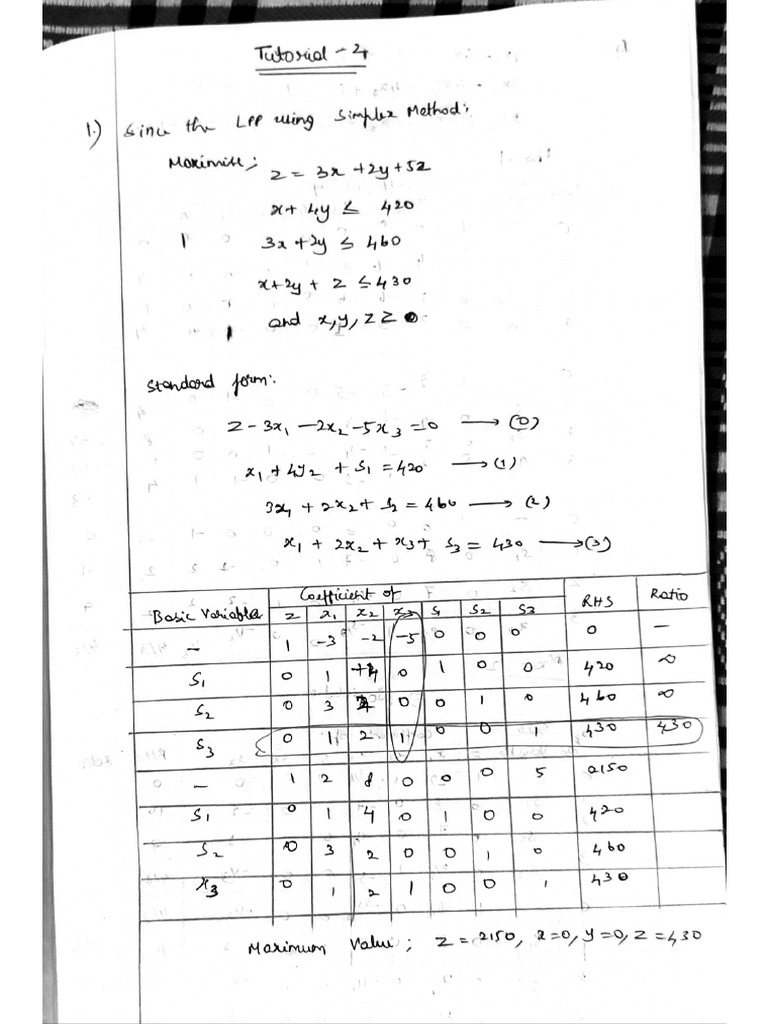 Tutorial - 4
1.) Since the LPP using Simplex Method:
Maximise; z = 3x + 2y + 5z
x + 4y ≤ 420
3x + 2y ≤ 460
x + 2y + z ≤ 430
and x, y, z ≥ 0
Standard form:
Z - 3x₁ - 2x₂ - 5x₃ = 0 → (0)
x₁ + 4y₂ + S₁ = 420 → (1)
3x₁ + 2x₂ + S₂ = 460 → (2)
x₁ + 2x₂ + x₃ + S₃ = 430 → (3)
Basic Variable Coefficient of RHS Ratio
z x₁ x₂ x₃ S₁ S₂ S₃
- 1 -3 -2 -5 0 0 0 0 -
S₁ 0 1 4 0 1 0 0 420 ∞
S₂ 0 3 2 0 0 1 0 460 ∞
S₃ 0 1 2 1 0 0 1 430 430
- 1 2 8 0 0 0 5 2150
S₁ 0 1 4 0 1 0 0 420
S₂ 0 3 2 0 0 1 0 460
x₃ 0 1 2 1 0 0 1 430
Maximum Value; Z = 2150, x = 0, y = 0, Z = 430